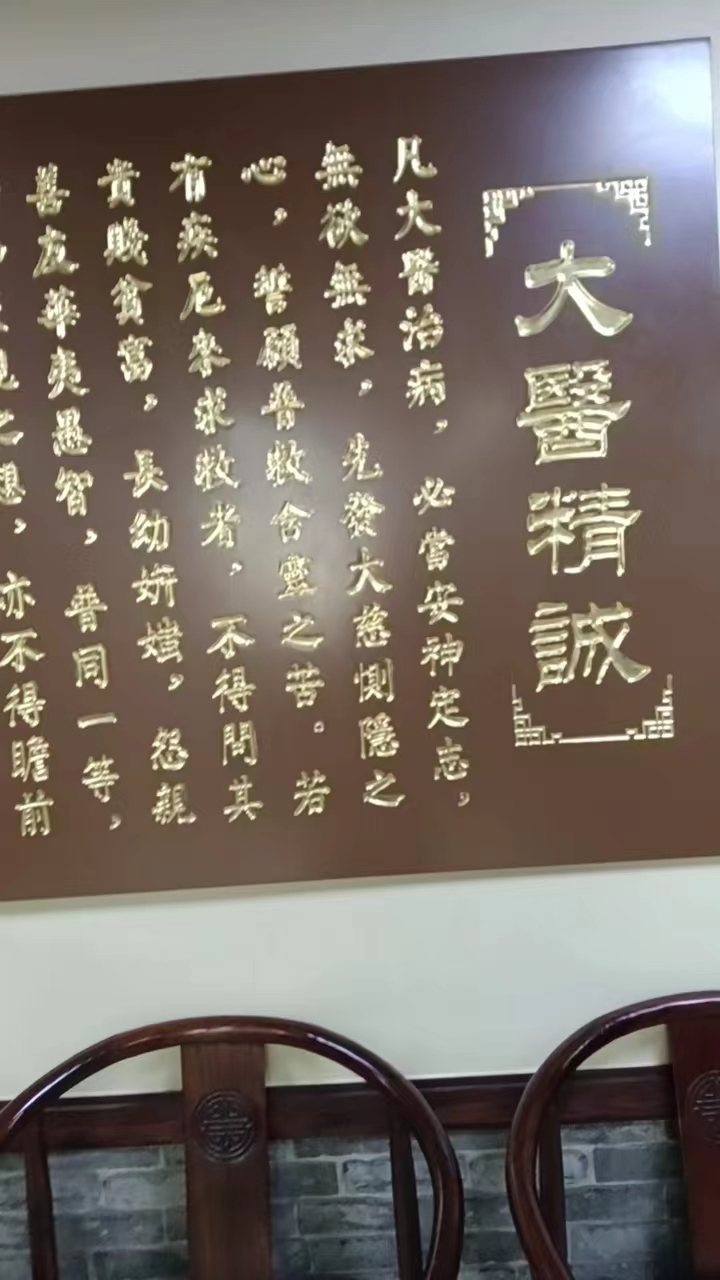 大醫精誠
凡大醫治病，必當安神定志，
無欲無求，先發大慈惻隱之
心，誓願普救含靈之苦。若
有疾厄來求救者，不得問其
貴賤貧富，長幼妍媸，怨親
善友華夷愚智，普同一等，
之想，亦不得瞻前